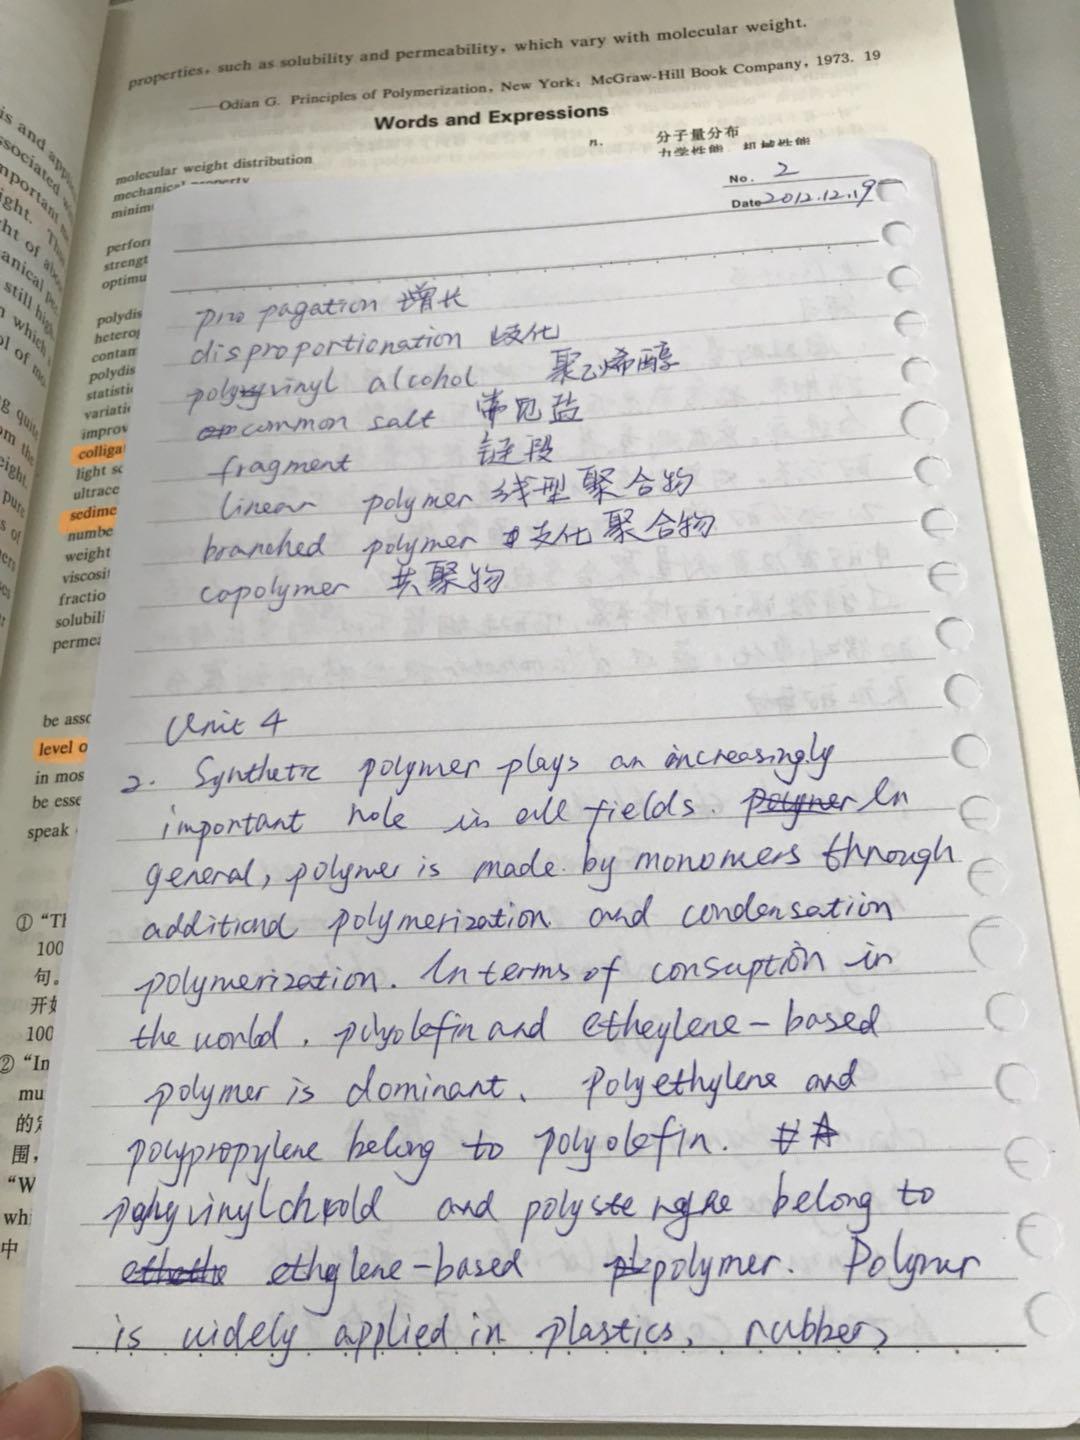 properties, such as solubility and permeability, which vary with molecular weight.
——Odian G. Principles of Polymerization, New York: McGraw-Hill Book Company, 1973. 19
Words and Expressions
molecular weight distribution n. 分子量分布
mechanical property 力学性能, 机械性能
minim
perfor
streng
optimu
polydis
heterog
contan
polydis
statisti
variati
improv
colliga
light sc
ultrace
sedime
numbe
weight
viscosi
fractio
solubili
permea
be assc
level o
in mos
be esse
speak
① “Tl
100
句。
开始
100
② “In
mu
的定
围,
“W
whi
中
No. 2
Date 2012.12.19
propagation 增长
disproportionation 歧化
polyvinyl alcohol 聚乙烯醇
common salt 常见盐
fragment 链段
linear polymer 线型聚合物
branched polymer 支化聚合物
copolymer 共聚物
Unit 4
2. Synthetic polymer plays an increasingly
important role in all fields. In
general, polymer is made by monomers through
additiond polymerization and condensation
polymerization. In terms of consuption in
the world, polyolefin and etheylene-based
polymer is dominant. Polyethylene and
polypropylene belong to polyolefin.
and belong to
ethylene-based polymer. Polymer
is widely applied in plastics, rubber,